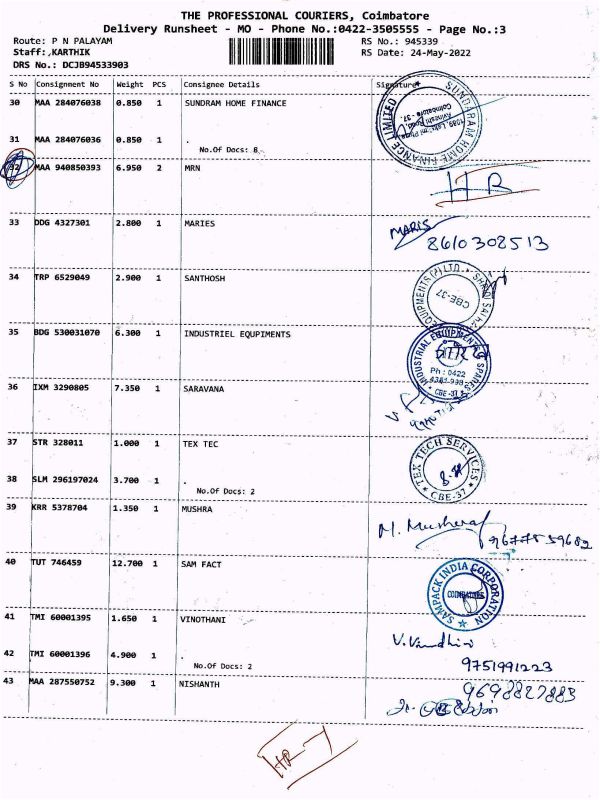 THE PROFESSIONAL COURIERS, Coimbatore
Delivery Runsheet - MO - Phone No.:0422-3505555 - Page No.:3
Route: P N PALAYAM RS No.: 945339
Staff:,KARTHIK RS Date: 24-May-2022
DRS No.: DCJB94533903
S No Consignment No Weight PCS Consignee Details Signature
30 MAA 284076038 0.850 1 SUNDRAM HOME FINANCE
SUNDARAM HOME FINANCE LIMITED
31 MAA 284076036 0.850 1 .
No.Of Docs: 8
32 MAA 940850393 6.950 2 MRN
HR
33 DDG 4327301 2.800 1 MARIES
MARIS
8610302513
34 TRP 6529049 2.900 1 SANTHOSH
EQUIPMENTS (P) LTD.
CBE-37
35 BDG 530031070 6.300 1 INDUSTRIEL EQUPIMENTS
INDUSTRIAL EQUIPMENTS SPARES
Ph : 0422
CBE-37
36 IXM 3290805 7.350 1 SARAVANA
37 STR 328011 1.000 1 TEX TEC
TEX TECH SERVICES
CBE-37
38 SLM 296197024 3.700 1 .
No.Of Docs: 2
39 KRR 5378704 1.350 1 MUSHRA
M. Musheraf
9677559682
40 TUT 746459 12.700 1 SAM FACT
SAMPACK INDIA CORPORATION
COIMBATORE
41 TMI 60001395 1.650 1 VINOTHANI
42 TMI 60001396 4.900 1 .
No.Of Docs: 2
9751991223
43 MAA 287550752 9.300 1 NISHANTH
9698827883